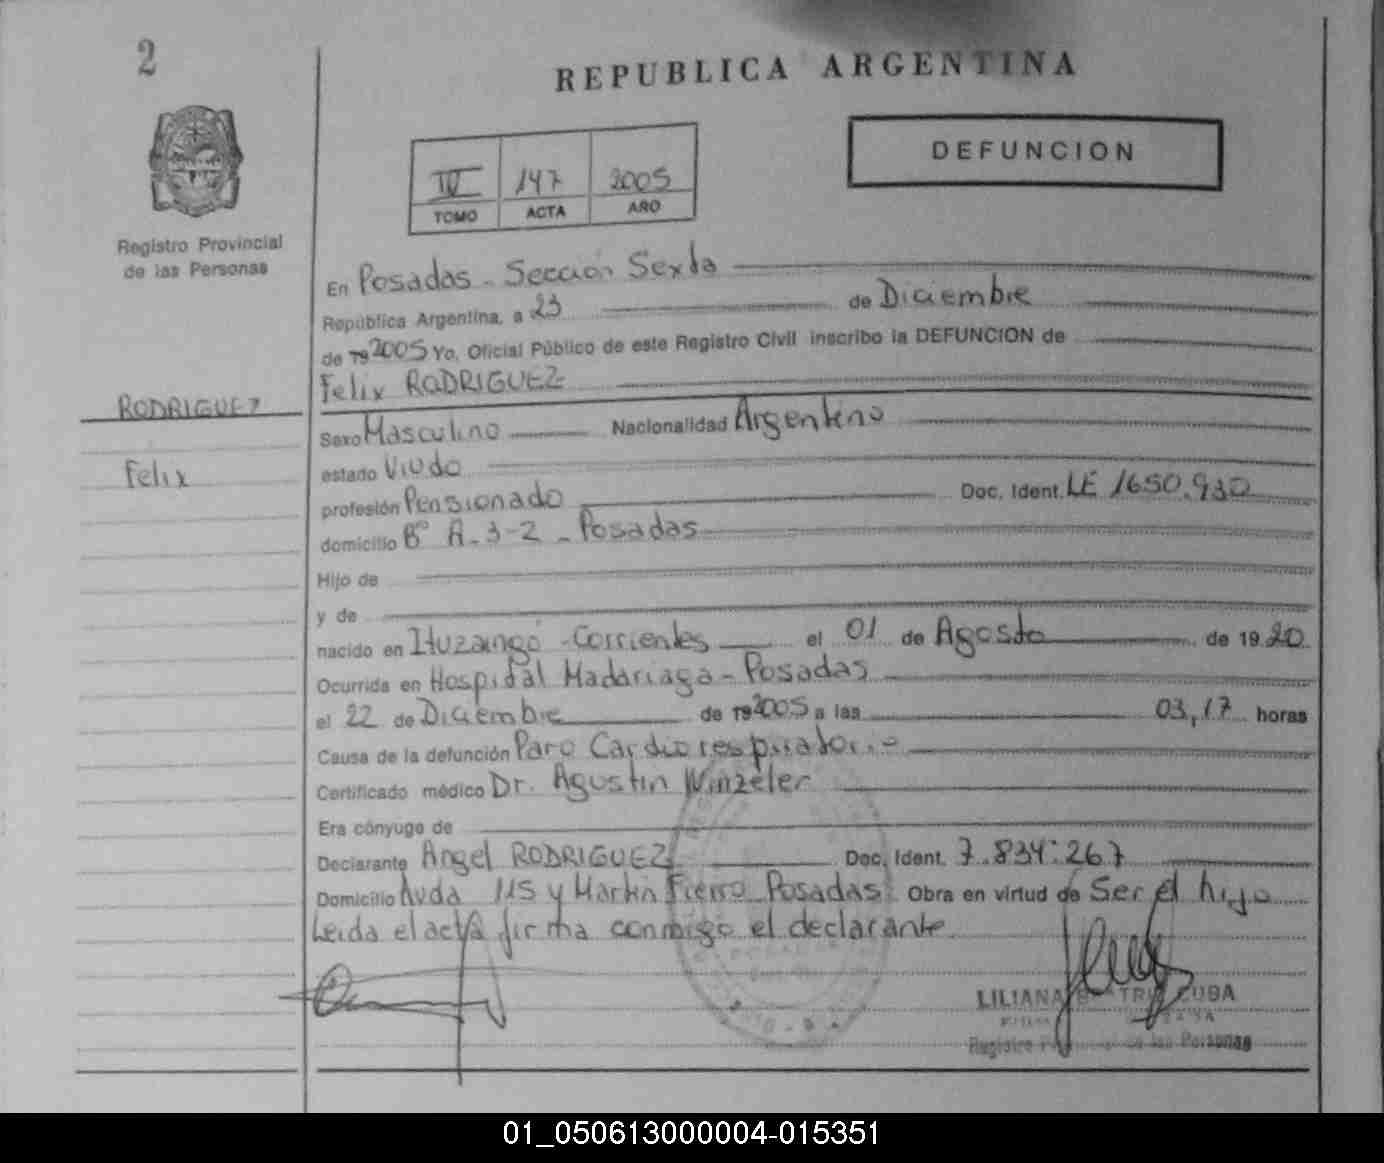 2
REPUBLICA ARGENTINA
DEFUNCION
IV 147 2005
TOMO ACTA AÑO
Registro Provincial
de las Personas
En Posadas - Sección Sexta
República Argentina, a 23 de Diciembre
de 19 2005 Yo, Oficial Público de este Registro Civil inscribo la DEFUNCION de
Felix RODRIGUEZ
RODRIGUEZ
Felix
Sexo Masculino Nacionalidad Argentino
estado Viudo
profesión Pensionado Doc. Ident. LE 1650.930
domicilio Bº A-3-2 - Posadas
Hijo de
y de
nacido en Ituzaingó - Corrientes el 01 de Agosto de 19 20
Ocurrida en Hospital Madariaga - Posadas
el 22 de Diciembre de 19 2005 a las 03,17 horas
Causa de la defunción Paro Cardiorespiratorio
Certificado médico Dr. Agustin Winzeler
Era cónyuge de
Declarante Angel RODRIGUEZ Doc. Ident. 7.834.267
Domicilio Avda 115 y Martin Fierro Posadas Obra en virtud de Ser el hijo
Leida el acta firma conmigo el declarante
LILIANA CUBA
Registro de las Personas
01_050613000004-015351